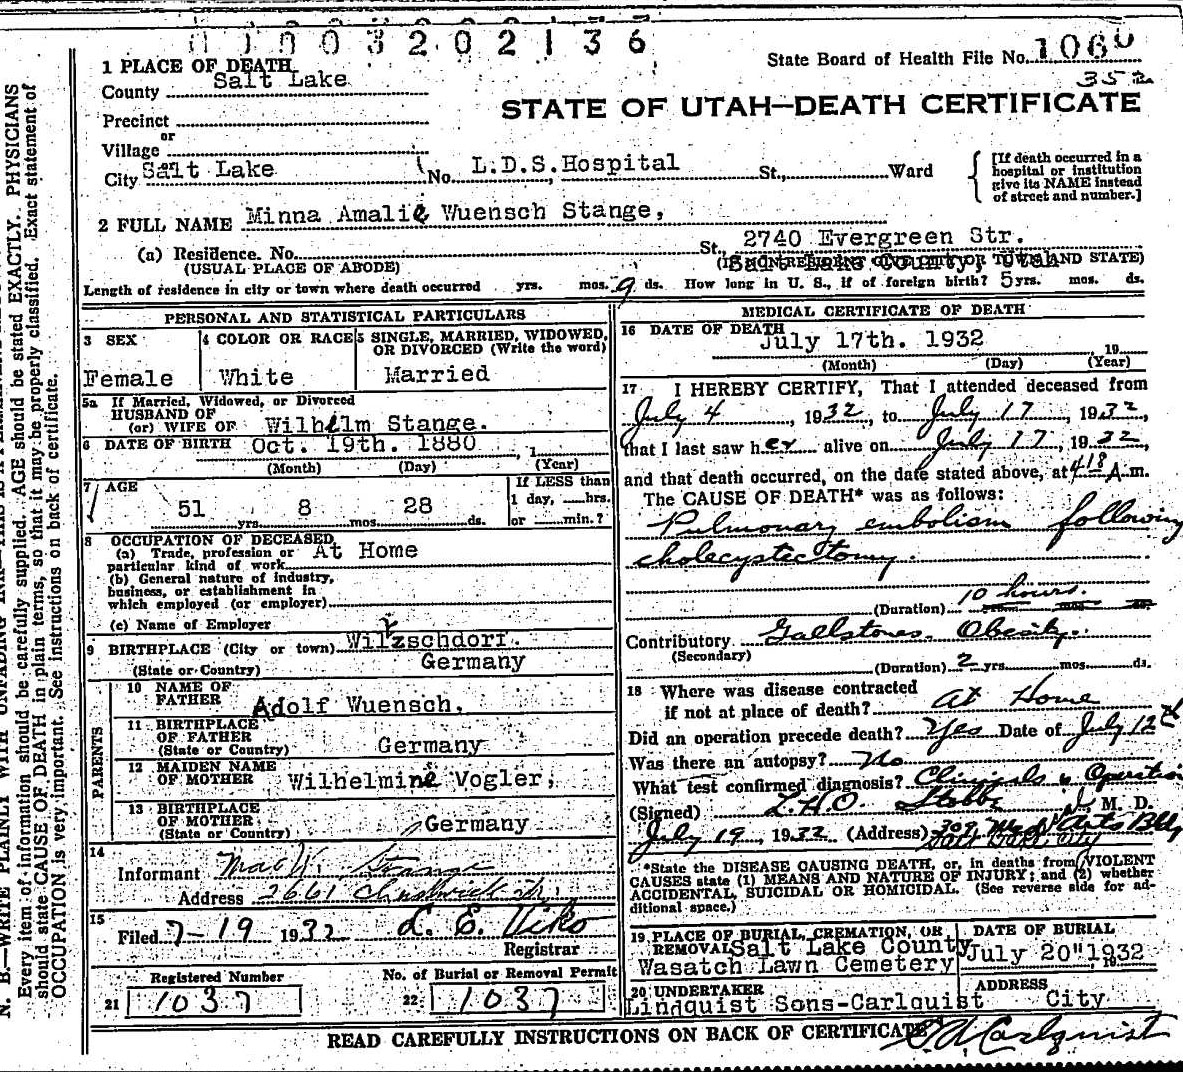 0 1 0 0 3 2 0 2 1 3 6
State Board of Health File No. 1060
352
STATE OF UTAH—DEATH CERTIFICATE
1 PLACE OF DEATH
County Salt Lake
Precinct
or
Village
City Salt Lake No. L.D.S. Hospital St., Ward
[If death occurred in a hospital or institution give its NAME instead of street and number.]
2 FULL NAME Minna Amalie Wuensch Stange,
(a) Residence. No. St. 2740 Evergreen Str.
(USUAL PLACE OF ABODE) Salt Lake County, Utah
Length of residence in city or town where death occurred yrs. mos. 9 ds. How long in U. S., if of foreign birth? 5 yrs. mos. ds.
PERSONAL AND STATISTICAL PARTICULARS
3 SEX Female
4 COLOR OR RACE White
5 SINGLE, MARRIED, WIDOWED, OR DIVORCED (Write the word) Married
5a If Married, Widowed, or Divorced
HUSBAND OF
(or) WIFE OF Wilhelm Stange.
6 DATE OF BIRTH Oct. 19th. 1880, 1
(Month) (Day) (Year)
7 AGE 51 yrs. 8 mos. 28 ds.
If LESS than 1 day, hrs. or min.?
8 OCCUPATION OF DECEASED
(a) Trade, profession or particular kind of work At Home
(b) General nature of industry, business, or establishment in which employed (or employer)
(c) Name of Employer
9 BIRTHPLACE (City or town) Wilkzschdorf.
(State or Country) Germany
PARENTS
10 NAME OF FATHER Adolf Wuensch.
11 BIRTHPLACE OF FATHER (State or Country) Germany
12 MAIDEN NAME OF MOTHER Wilhelmine Vogler,
13 BIRTHPLACE OF MOTHER (State or Country) Germany
14
Informant Max W. Stange
Address 2661
15
Filed 7-19 1932 L. E. Viko
Registrar
Registered Number
21 1037
No. of Burial or Removal Permit
22 1037
MEDICAL CERTIFICATE OF DEATH
16 DATE OF DEATH July 17th. 1932 19
(Month) (Day) (Year)
17 I HEREBY CERTIFY, That I attended deceased from
July 4, 1932, to July 17, 1932,
that I last saw her alive on July 17, 1932,
and that death occurred, on the date stated above, at 418 A.m.
The CAUSE OF DEATH* was as follows:
Pulmonary embolism following
cholecystectomy.
(Duration) 10 hours. yrs. mos. ds.
Contributory Gallstones. Obesity.
(Secondary)
(Duration) 2 yrs. mos. ds.
18 Where was disease contracted
if not at place of death? At Home
Did an operation precede death? Yes Date of July 12
Was there an autopsy? No
What test confirmed diagnosis? Clinical & Operation
(Signed) L.H.O. Stobbe M. D.
July 19, 1932 (Address) 309 Med Arts Bldg
Salt Lake City
*State the DISEASE CAUSING DEATH, or, in deaths from VIOLENT
CAUSES state (1) MEANS AND NATURE OF INJURY; and (2) whether
ACCIDENTAL, SUICIDAL OR HOMICIDAL. (See reverse side for ad-
ditional space.)
19 PLACE OF BURIAL, CREMATION, OR REMOVAL Salt Lake County
Wasatch Lawn Cemetery
DATE OF BURIAL
July 20" 1932, 19
20 UNDERTAKER
Lindquist Sons-Carlquist
ADDRESS
City
READ CAREFULLY INSTRUCTIONS ON BACK OF CERTIFICATE
C A Carlquist
N. B.—WRITE PLAINLY WITH UNFADING INK—THIS IS A
Every item of information should be carefully supplied. AGE should be stated EXACTLY. PHYSICIANS
should state CAUSE OF DEATH in plain terms, so that it may be properly classified. Exact statement of
OCCUPATION is very important. See instructions on back of certificate.